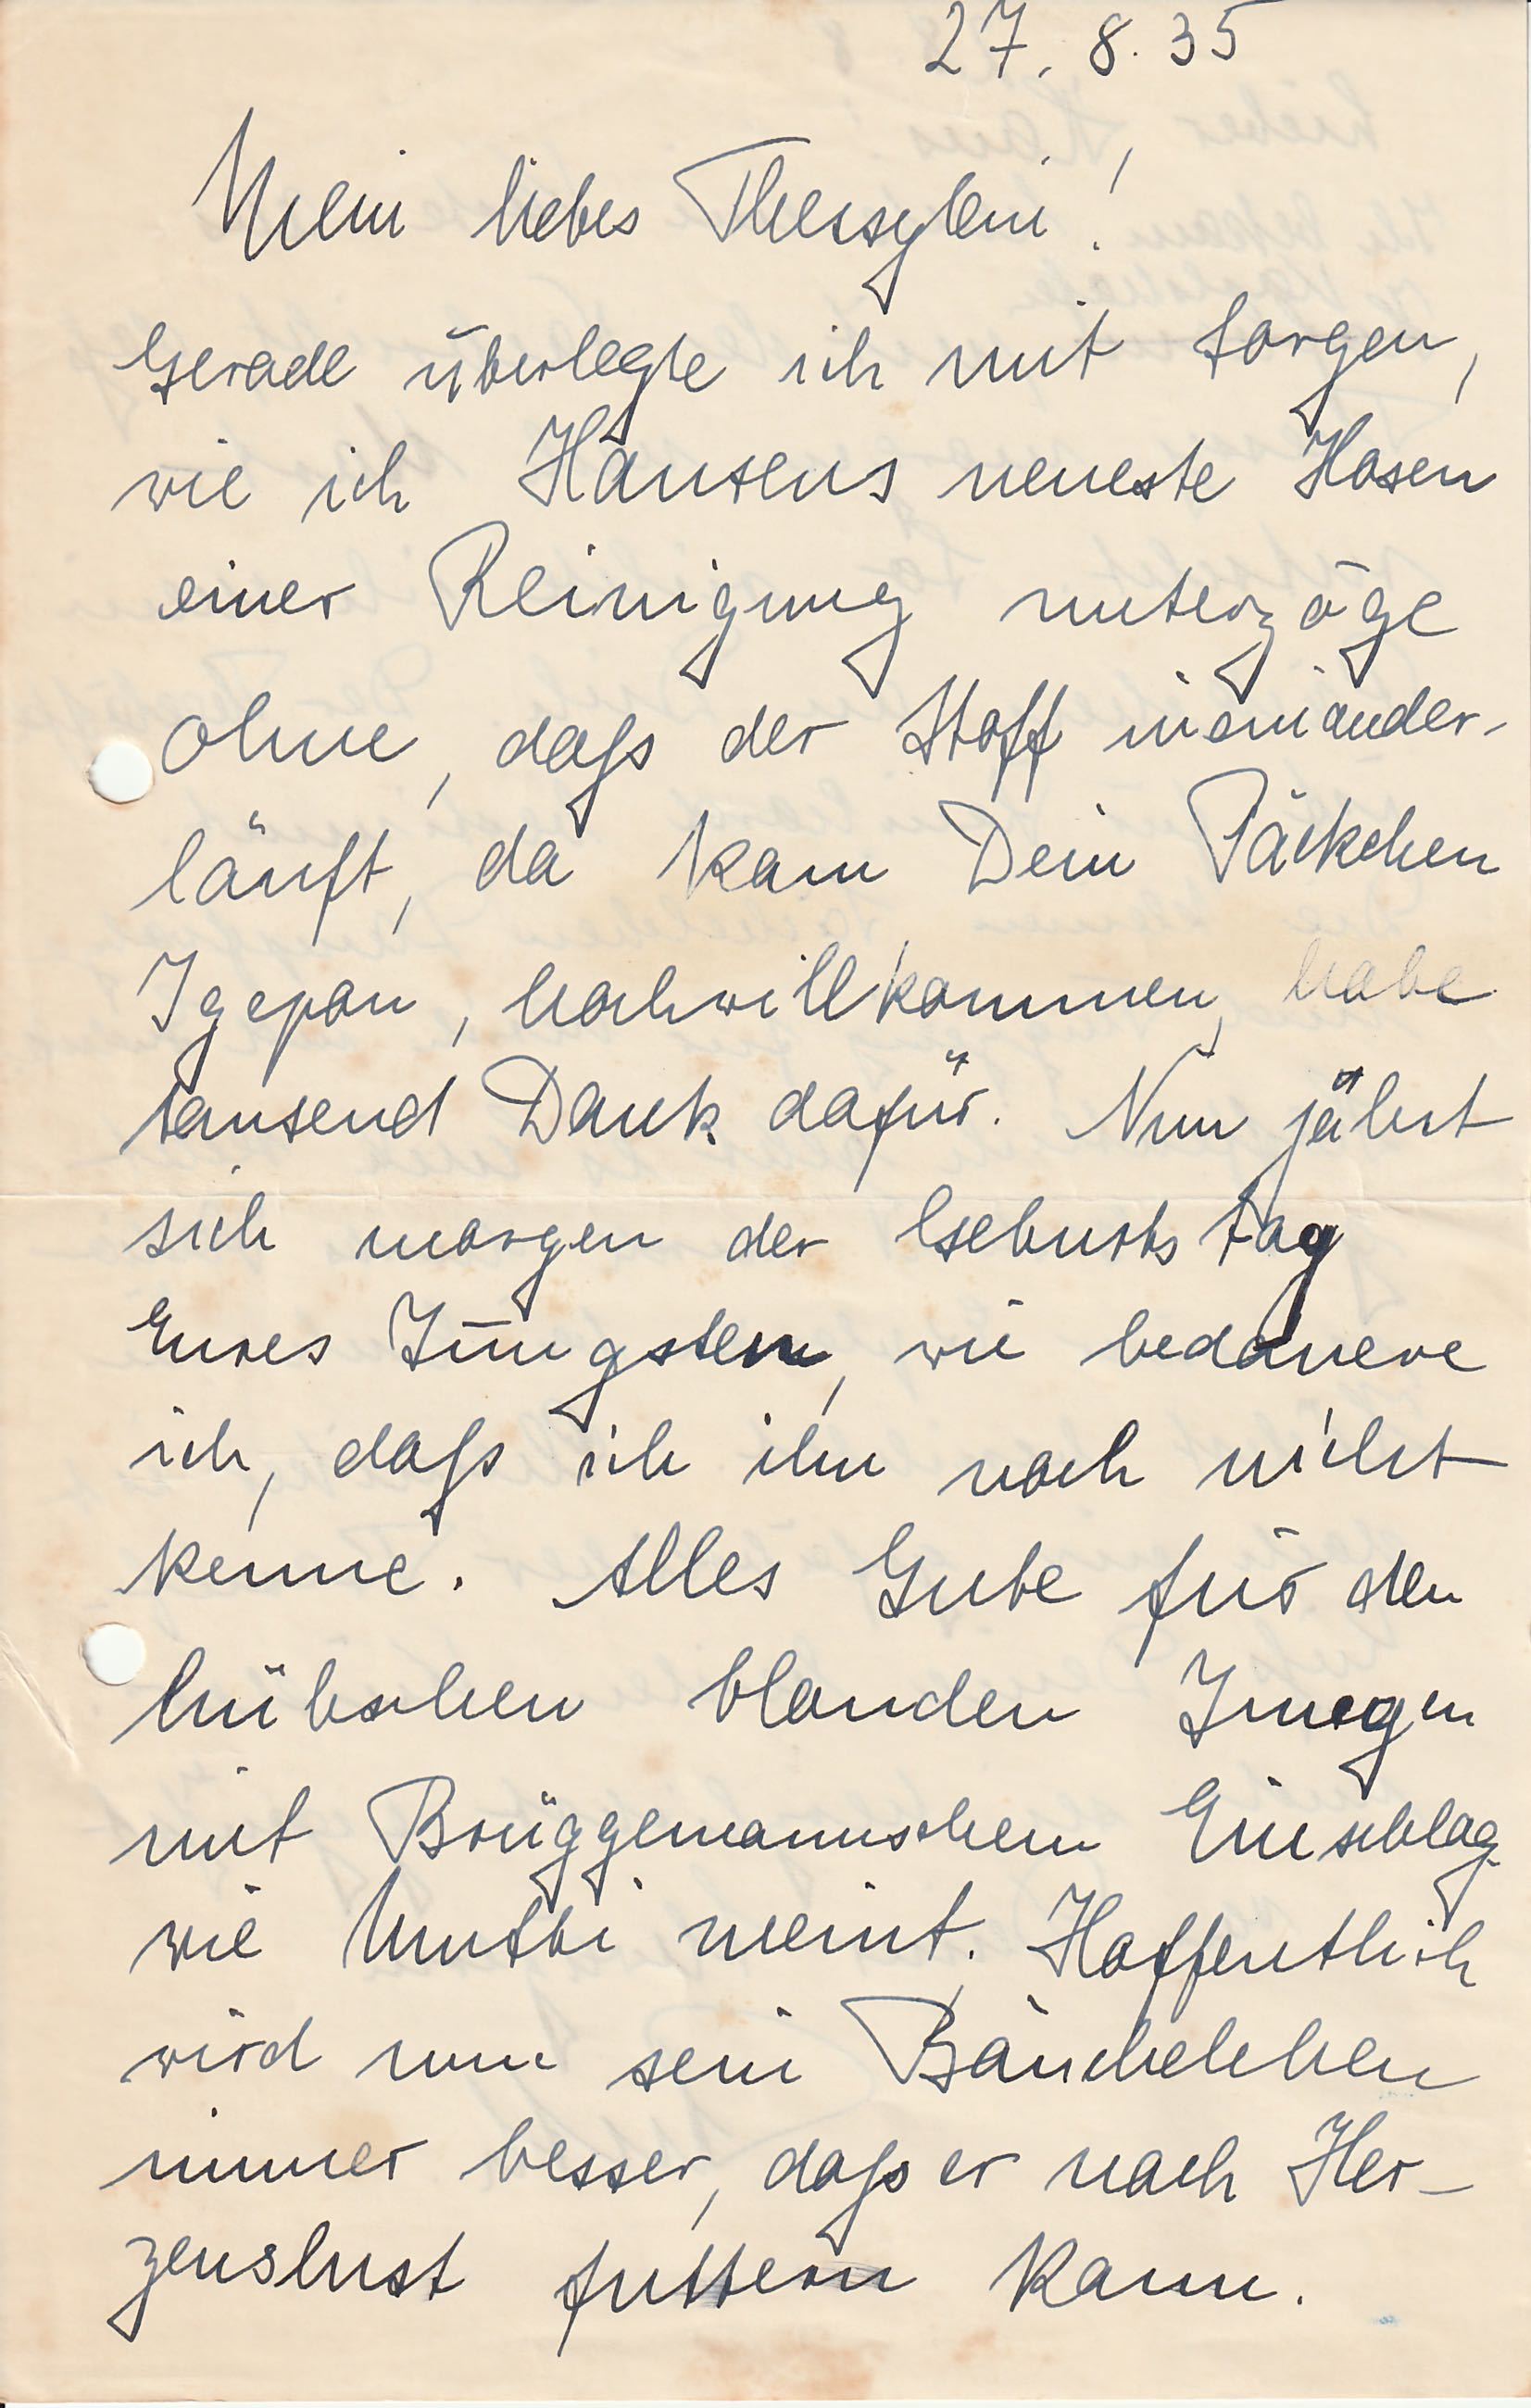 27. 8. 35
Mein liebes Thessylein!
Gerade überlegte ich mit Sorgen,
wie ich Hansens neueste Hosen
einer Reinigung unterzöge
ohne, daß der Stoff ineinander-
läuft, da kam Dein Päckchen
Igepon, hochwillkommen, habe
tausend Dank dafür. Nun jährt
sich morgen der Geburtstag
Eures Jüngsten, wie bedauere
ich, daß ich ihn noch nicht
kenne. Alles Gute für den
hübschen blonden Jungen
mit Brüggemannschem Einschlag
wie Mutti meint. Hoffentlich
wird nun sein Bäuchelchen
immer besser, daß er nach Her-
zenslust futtern kann.